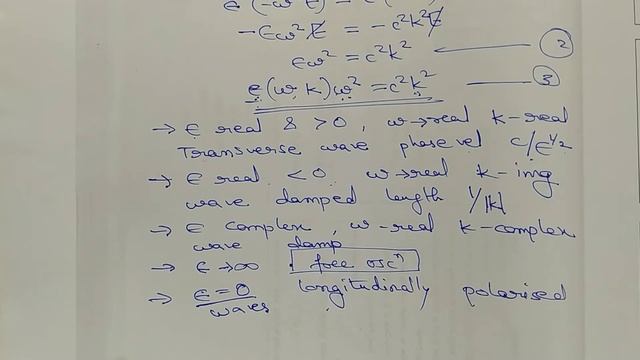 ϵ(-ω²E) = -c²k²E
-ϵω²E = -c²k²E
ϵω² = c²k² ②
ϵ(ω k)ω² = c²k² ③
→ ϵ real & > 0, ω→real k-real
Transverse wave phase vel c/ϵ^1/2
→ ϵ real < 0 ω→real k-img
wave damped length 1/|k|
→ ϵ complex, ω-real k-complex
wave damp
→ ϵ→∞ . free oscⁿ
→ ϵ = 0 longitudinally polarised
waves